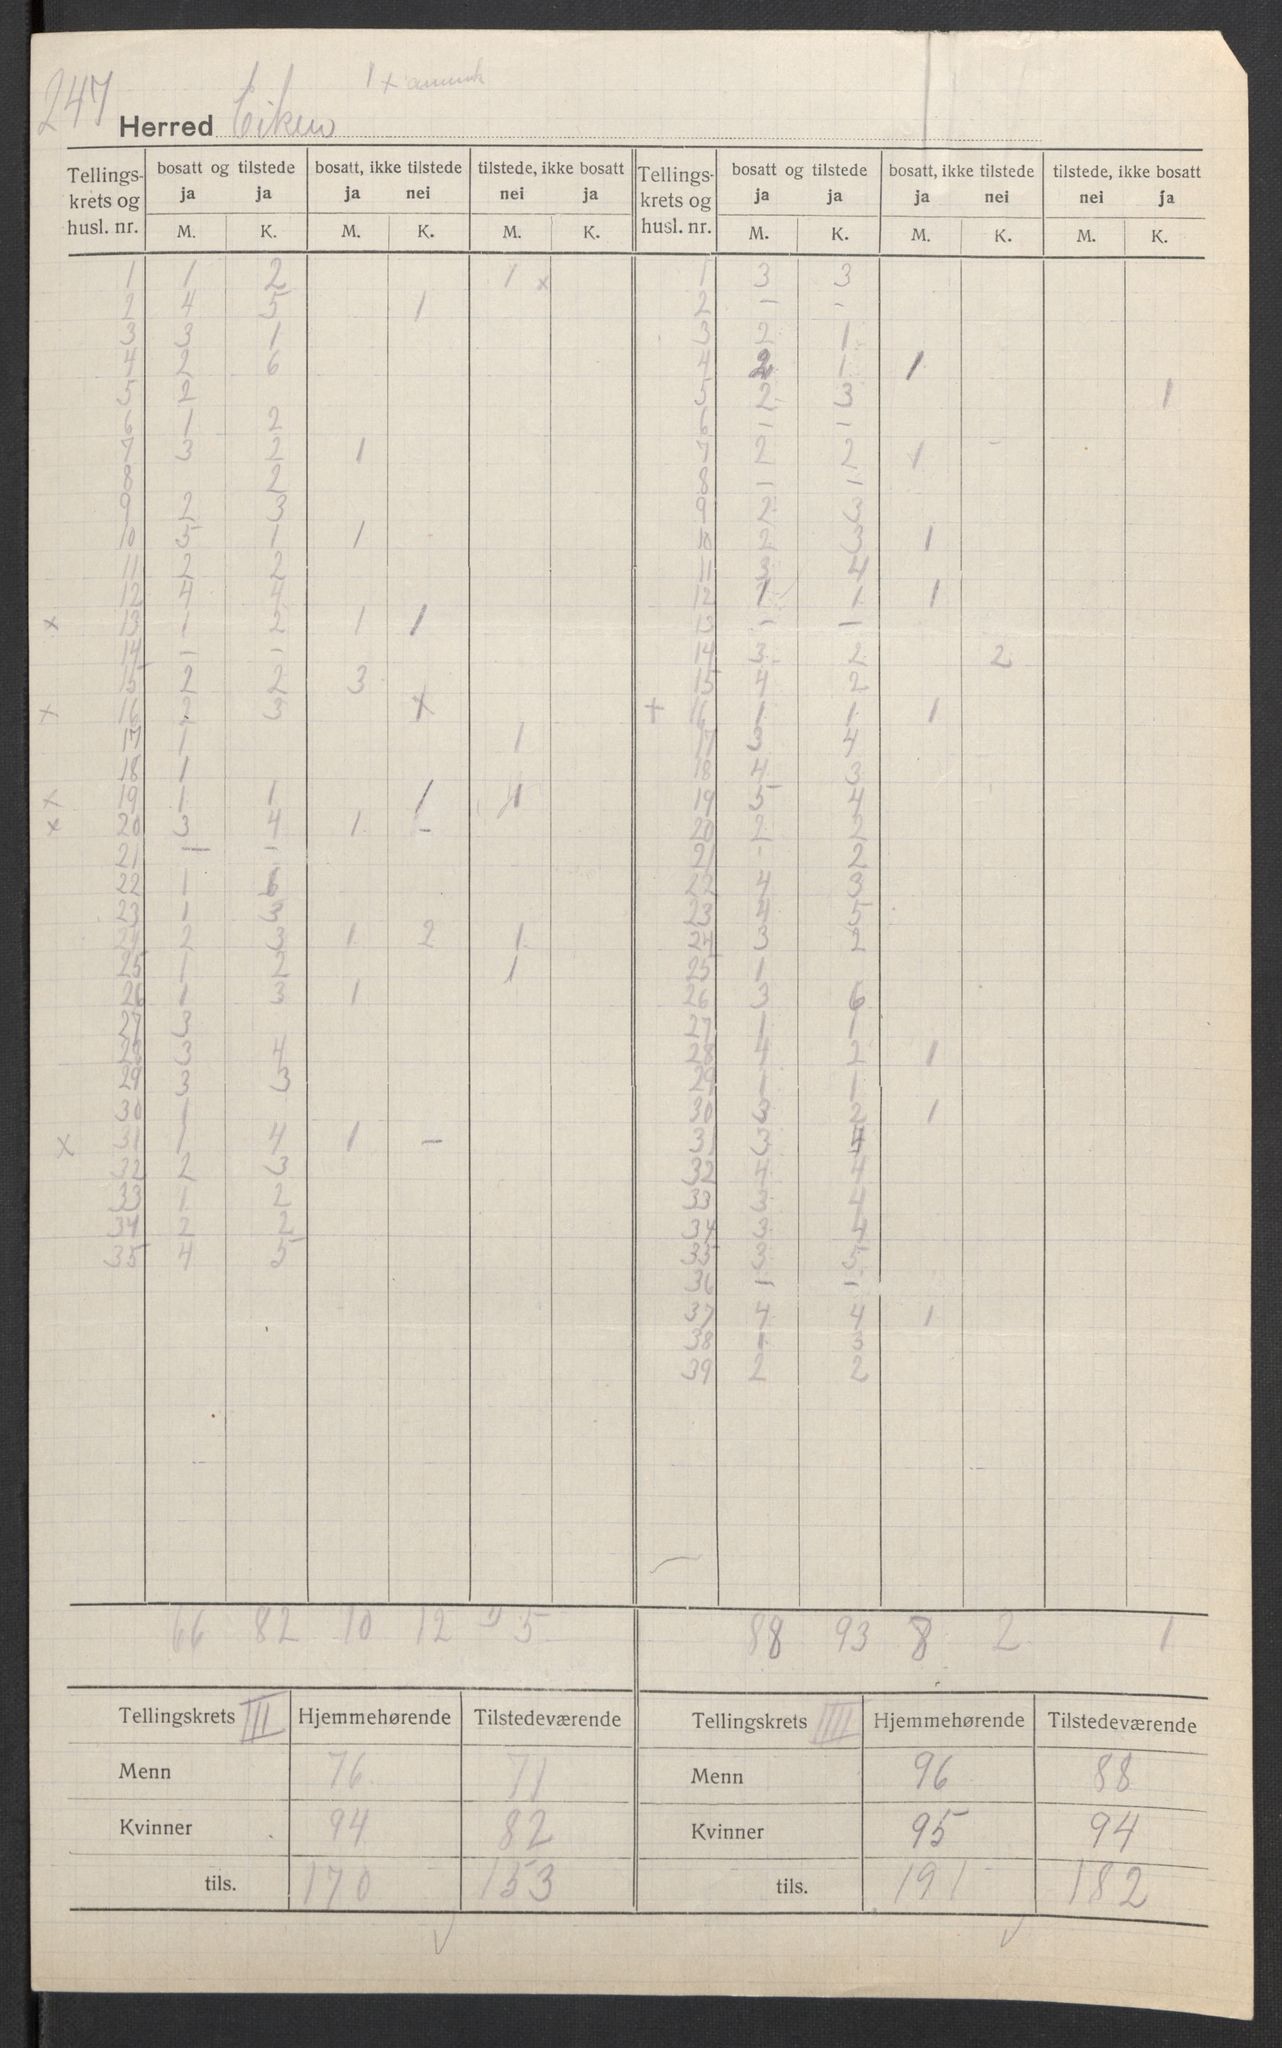 247
1 x
Herred Eiken
Tellings-krets og husl. nr. | bosatt og tilstede ja ja | bosatt, ikke tilstede ja nei | tilstede, ikke bosatt nei ja | Tellings-krets og husl. nr. | bosatt og tilstede ja ja | bosatt, ikke tilstede ja nei | tilstede, ikke bosatt nei ja
M. K. M. K. M. K. M. K. M. K. M. K.
1 1 2 1 x
2 4 5 1
3 3 1
4 2 6
5 2
6 1 2
7 3 2 1
8 2
9 2 3
10 5 1 1
11 2 2
12 4 4
x 13 1 2 1 1
14 - -
15 2 2 3
x 16 2 3
17 1 1
18 1
x 19 1 1 1
x 20 3 4 1 -
21 - -
22 1
23 1 3
24 2 3 1 2 1
25 1 2 1
26 1 3 1
27 3
28 3 4
29 3 3
30 1
x 31 1 4 1 -
32 2 3
33 1 2
34 2 2
35 4 5
1 3 3
2 - -
3 2 1
4 2 1 1
5 2 3 1
6 - -
7 2 2 1 -
8 - 1
9 2 3
10 2 3 1
11 3 4
12 1 1 1
13 - -
14 3 2 2
15 4 2
+ 16 1 1 1
17 3 4
18 4 3
19 5 4
20 2 2
21 - 2
22 4 3
23 4 5
24 3 2
25 1
26 3 6
27 1 1
28 4 2 1
29 1 1
30 3 2 1
31 3 4
32 4 4
33 3 4
34 3 4
35 3 5
36 - -
37 4 4 1
38 1 3
39 2 2
66 82 10 12 5 88 93 8 2 1
Tellingskrets III Hjemmehørende Tilstedeværende Tellingskrets IIII Hjemmehørende Tilstedeværende
Menn 76 71 Menn 96 88
Kvinner 94 82 Kvinner 95 94
tils. 170 153 tils. 191 182